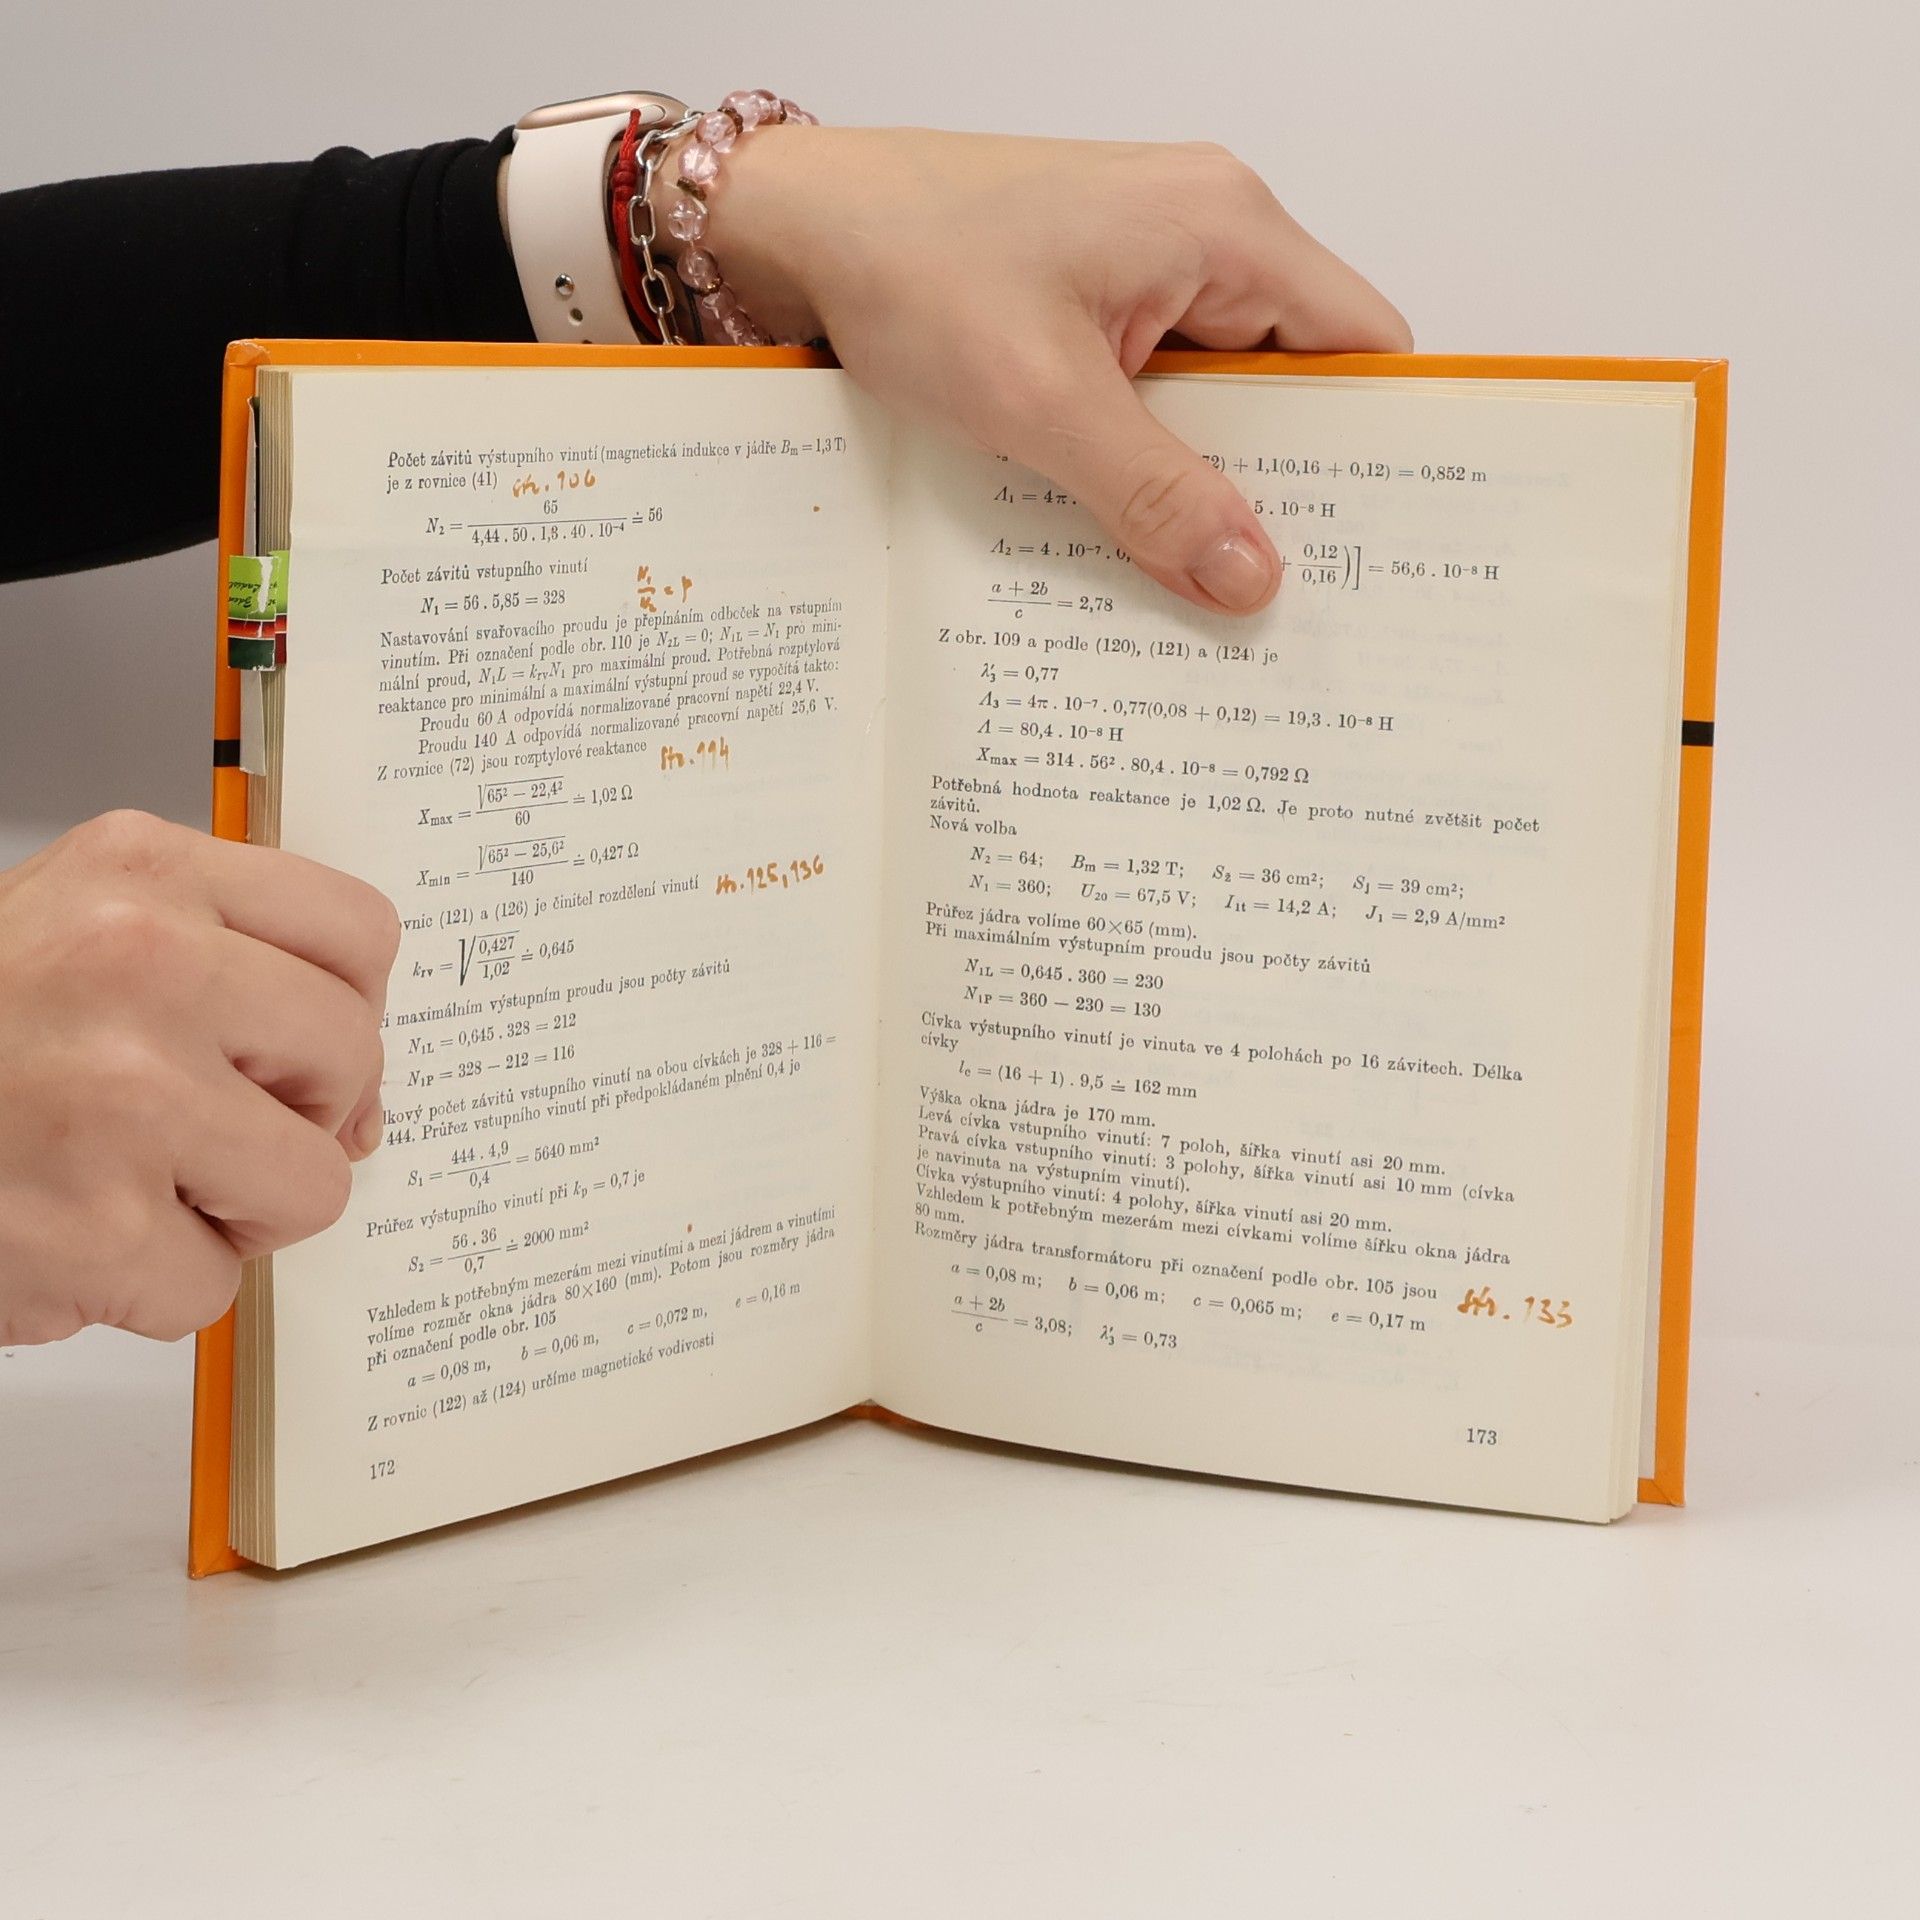 Počet závitů výstupního vinutí (magnetická indukce v jádře Bm = 1,3 T)
je z rovnice (41) str. 106
N2 = 65 / 4,44 . 50 . 1,3 . 40 . 10⁻⁴ ≐ 56
Počet závitů vstupního vinutí
N1 = 56 . 5,85 = 328 N1/N2 = p
Nastavování svařovacího proudu je přepínáním odboček na vstupním
vinutím. Při označení podle obr. 110 je N2L = 0; N1L = N1 pro mini-
mální proud, N1L = krvN1 pro maximální proud. Potřebná rozptylová
reaktance pro minimální a maximální výstupní proud se vypočítá takto:
Proudu 60 A odpovídá normalizované pracovní napětí 22,4 V.
Proudu 140 A odpovídá normalizované pracovní napětí 25,6 V.
Z rovnice (72) jsou rozptylové reaktance str. 114
Xmax = √(65² − 22,4²) / 60 ≐ 1,02 Ω
Xmin = √(65² − 25,6²) / 140 ≐ 0,427 Ω
ovnic (121) a (126) je činitel rozdělení vinutí str. 125, 136
krv = √(0,427 / 1,02) ≐ 0,645
i maximálním výstupním proudu jsou počty závitů
N1L = 0,645 . 328 = 212
N1P = 328 − 212 = 116
lkový počet závitů vstupního vinutí na obou cívkách je 328 + 116 =
444. Průřez vstupního vinutí při předpokládaném plnění 0,4 je
S1 = 444 . 4,9 / 0,4 = 5640 mm²
Průřez výstupního vinutí při kp = 0,7 je
S2 = 56 . 36 / 0,7 ≐ 2000 mm²
Vzhledem k potřebným mezerám mezi vinutími a mezi jádrem a vinutími
volíme rozměr okna jádra 80×160 (mm). Potom jsou rozměry jádra
při označení podle obr. 105
a = 0,08 m, b = 0,06 m, c = 0,072 m, e = 0,16 m
Z rovnic (122) až (124) určíme magnetické vodivosti
172
72) + 1,1(0,16 + 0,12) = 0,852 m
Λ1 = 4π . 5 . 10⁻⁸ H
Λ2 = 4 . 10⁻⁷ . 0, + 0,12 / 0,16 )] = 56,6 . 10⁻⁸ H
a + 2b / c = 2,78
Z obr. 109 a podle (120), (121) a (124) je
λ′3 = 0,77
Λ3 = 4π . 10⁻⁷ . 0,77(0,08 + 0,12) = 19,3 . 10⁻⁸ H
Λ = 80,4 . 10⁻⁸ H
Xmax = 314 . 56² . 80,4 . 10⁻⁸ = 0,792 Ω
Potřebná hodnota reaktance je 1,02 Ω. Je proto nutné zvětšit počet
závitů.
Nová volba
N2 = 64; Bm = 1,32 T; S2 = 36 cm²; Sj = 39 cm²;
N1 = 360; U20 = 67,5 V; I1t = 14,2 A; J1 = 2,9 A/mm²
Průřez jádra volíme 60×65 (mm).
Při maximálním výstupním proudu jsou počty závitů
N1L = 0,645 . 360 = 230
N1P = 360 − 230 = 130
Cívka výstupního vinutí je vinuta ve 4 polohách po 16 závitech. Délka
cívky
lc = (16 + 1) . 9,5 ≐ 162 mm
Výška okna jádra je 170 mm.
Levá cívka vstupního vinutí: 7 poloh, šířka vinutí asi 20 mm.
Pravá cívka vstupního vinutí: 3 polohy, šířka vinutí asi 10 mm (cívka
je navinuta na výstupním vinutí).
Cívka výstupního vinutí: 4 polohy, šířka vinutí asi 20 mm.
Vzhledem k potřebným mezerám mezi cívkami volíme šířku okna jádra
80 mm.
Rozměry jádra transformátoru při označení podle obr. 105 jsou str. 133
a = 0,08 m; b = 0,06 m; c = 0,065 m; e = 0,17 m
a + 2b / c = 3,08; λ′3 = 0,73
173